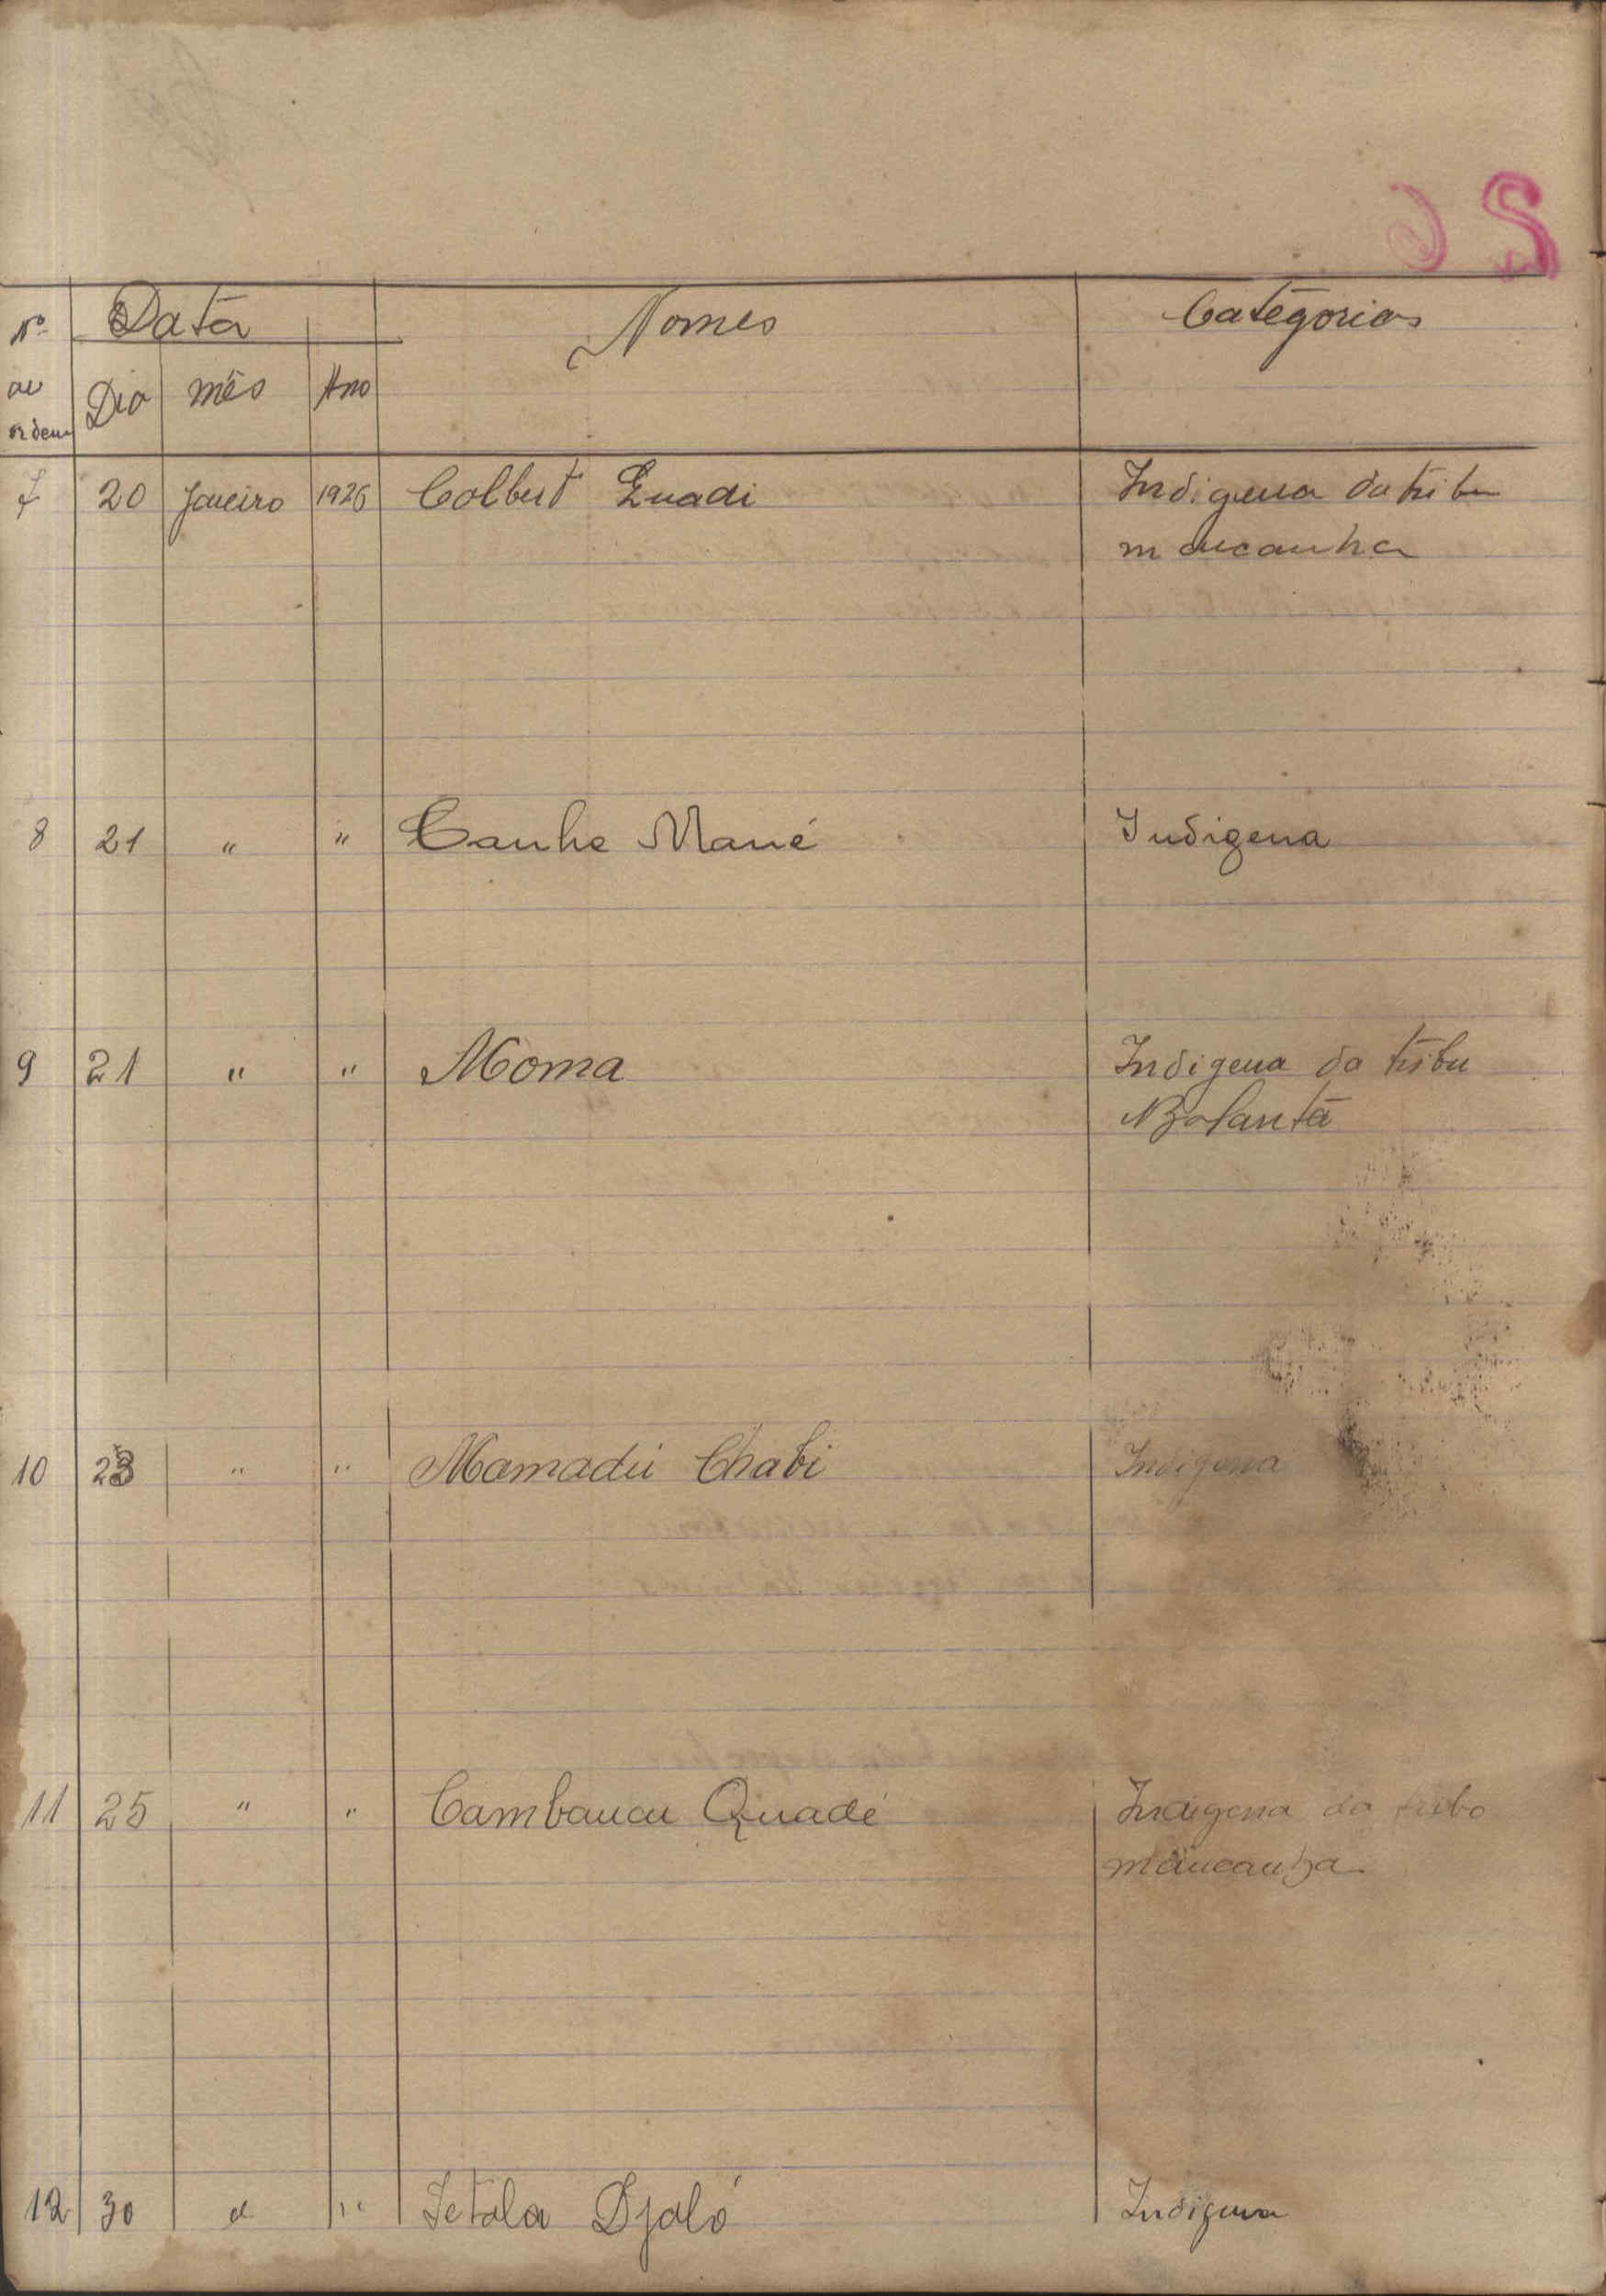 Nº de ordem Data Nomes Categorias
Dia mês Ano
7 20 Janeiro 1926 Colbert Quadi Indigena da tribu
mancanha
8 21 " " Canhe Mané Indigena
9 21 " " Moma Indigena da tribu
Balanta
10 23 " " Mamadú Chabi Indigena
11 25 " " Cambancu Quadé Indigena da tribo
mancanha
12 30 " " Setala Djaló Indigena